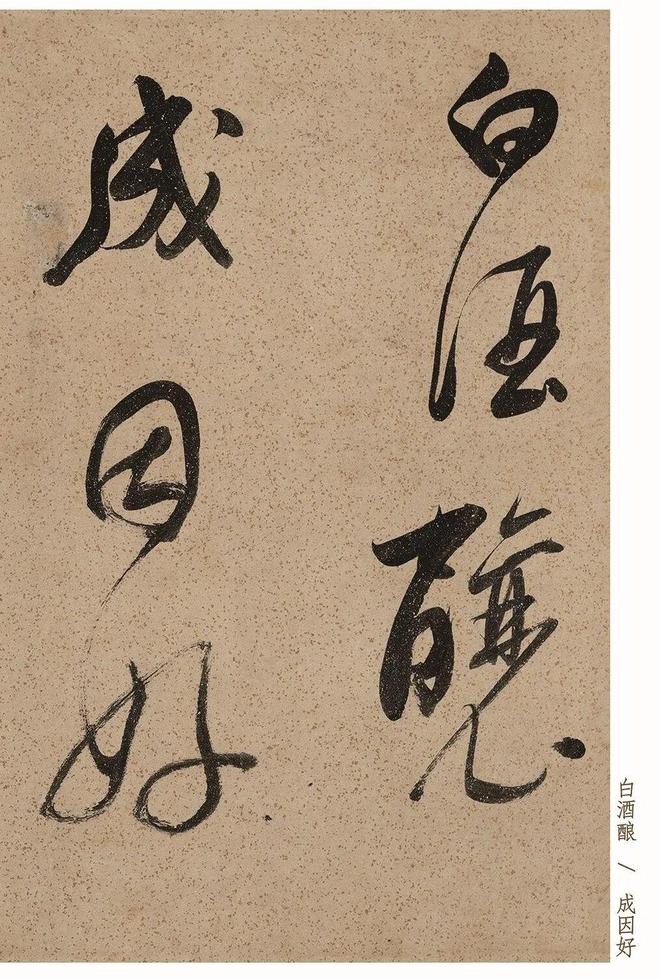 白酒釀
成因好
白酒酿 / 成因好